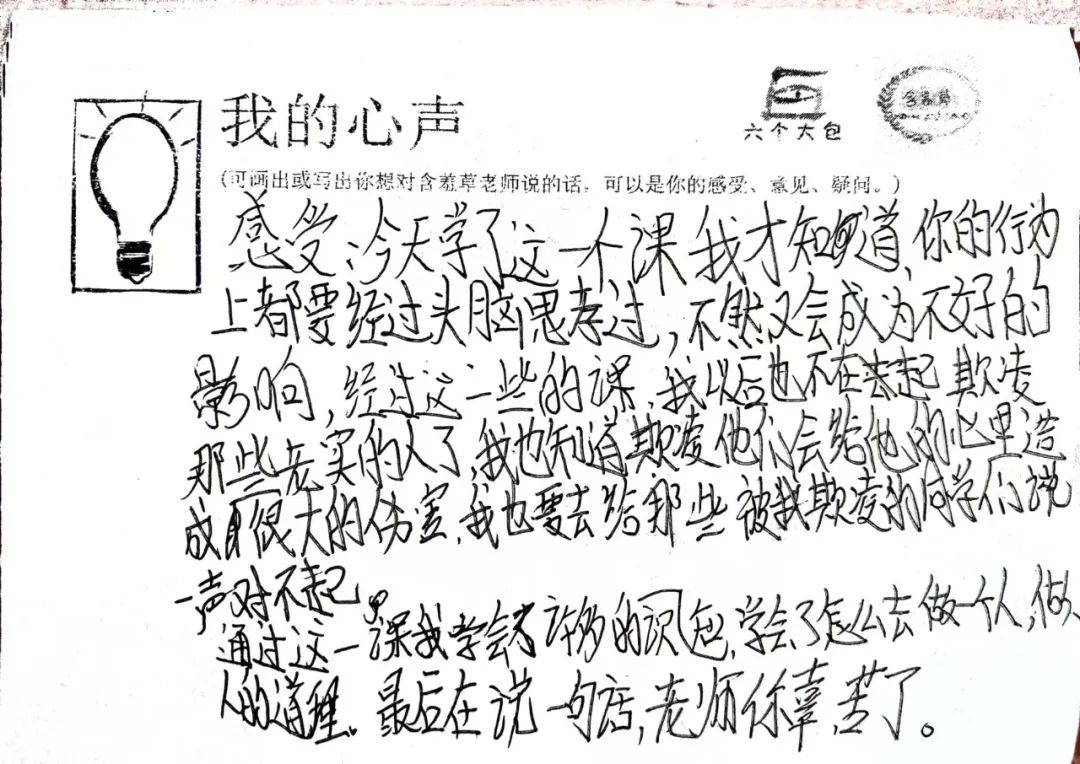 我的心声
六个大包
(可画出或写出你想对含羞草老师说的话，可以是你的感受、意见、疑问。)
感受：今天学了这一个课我才知道，你的行为
上都要经过头脑思考过，不然又会成为不好的
影响，经过这一些的课，我以后也不在去起欺凌
那些老实的人了，我也知道欺凌他们会给他的心里造
成很大的伤害，我也要去给那些被我欺凌的同学们说
一声对不起。
通过这一课我学会了许多的识，学会了怎么去做一个人，做
人的道理。最后在说一句话，老师你辛苦了。